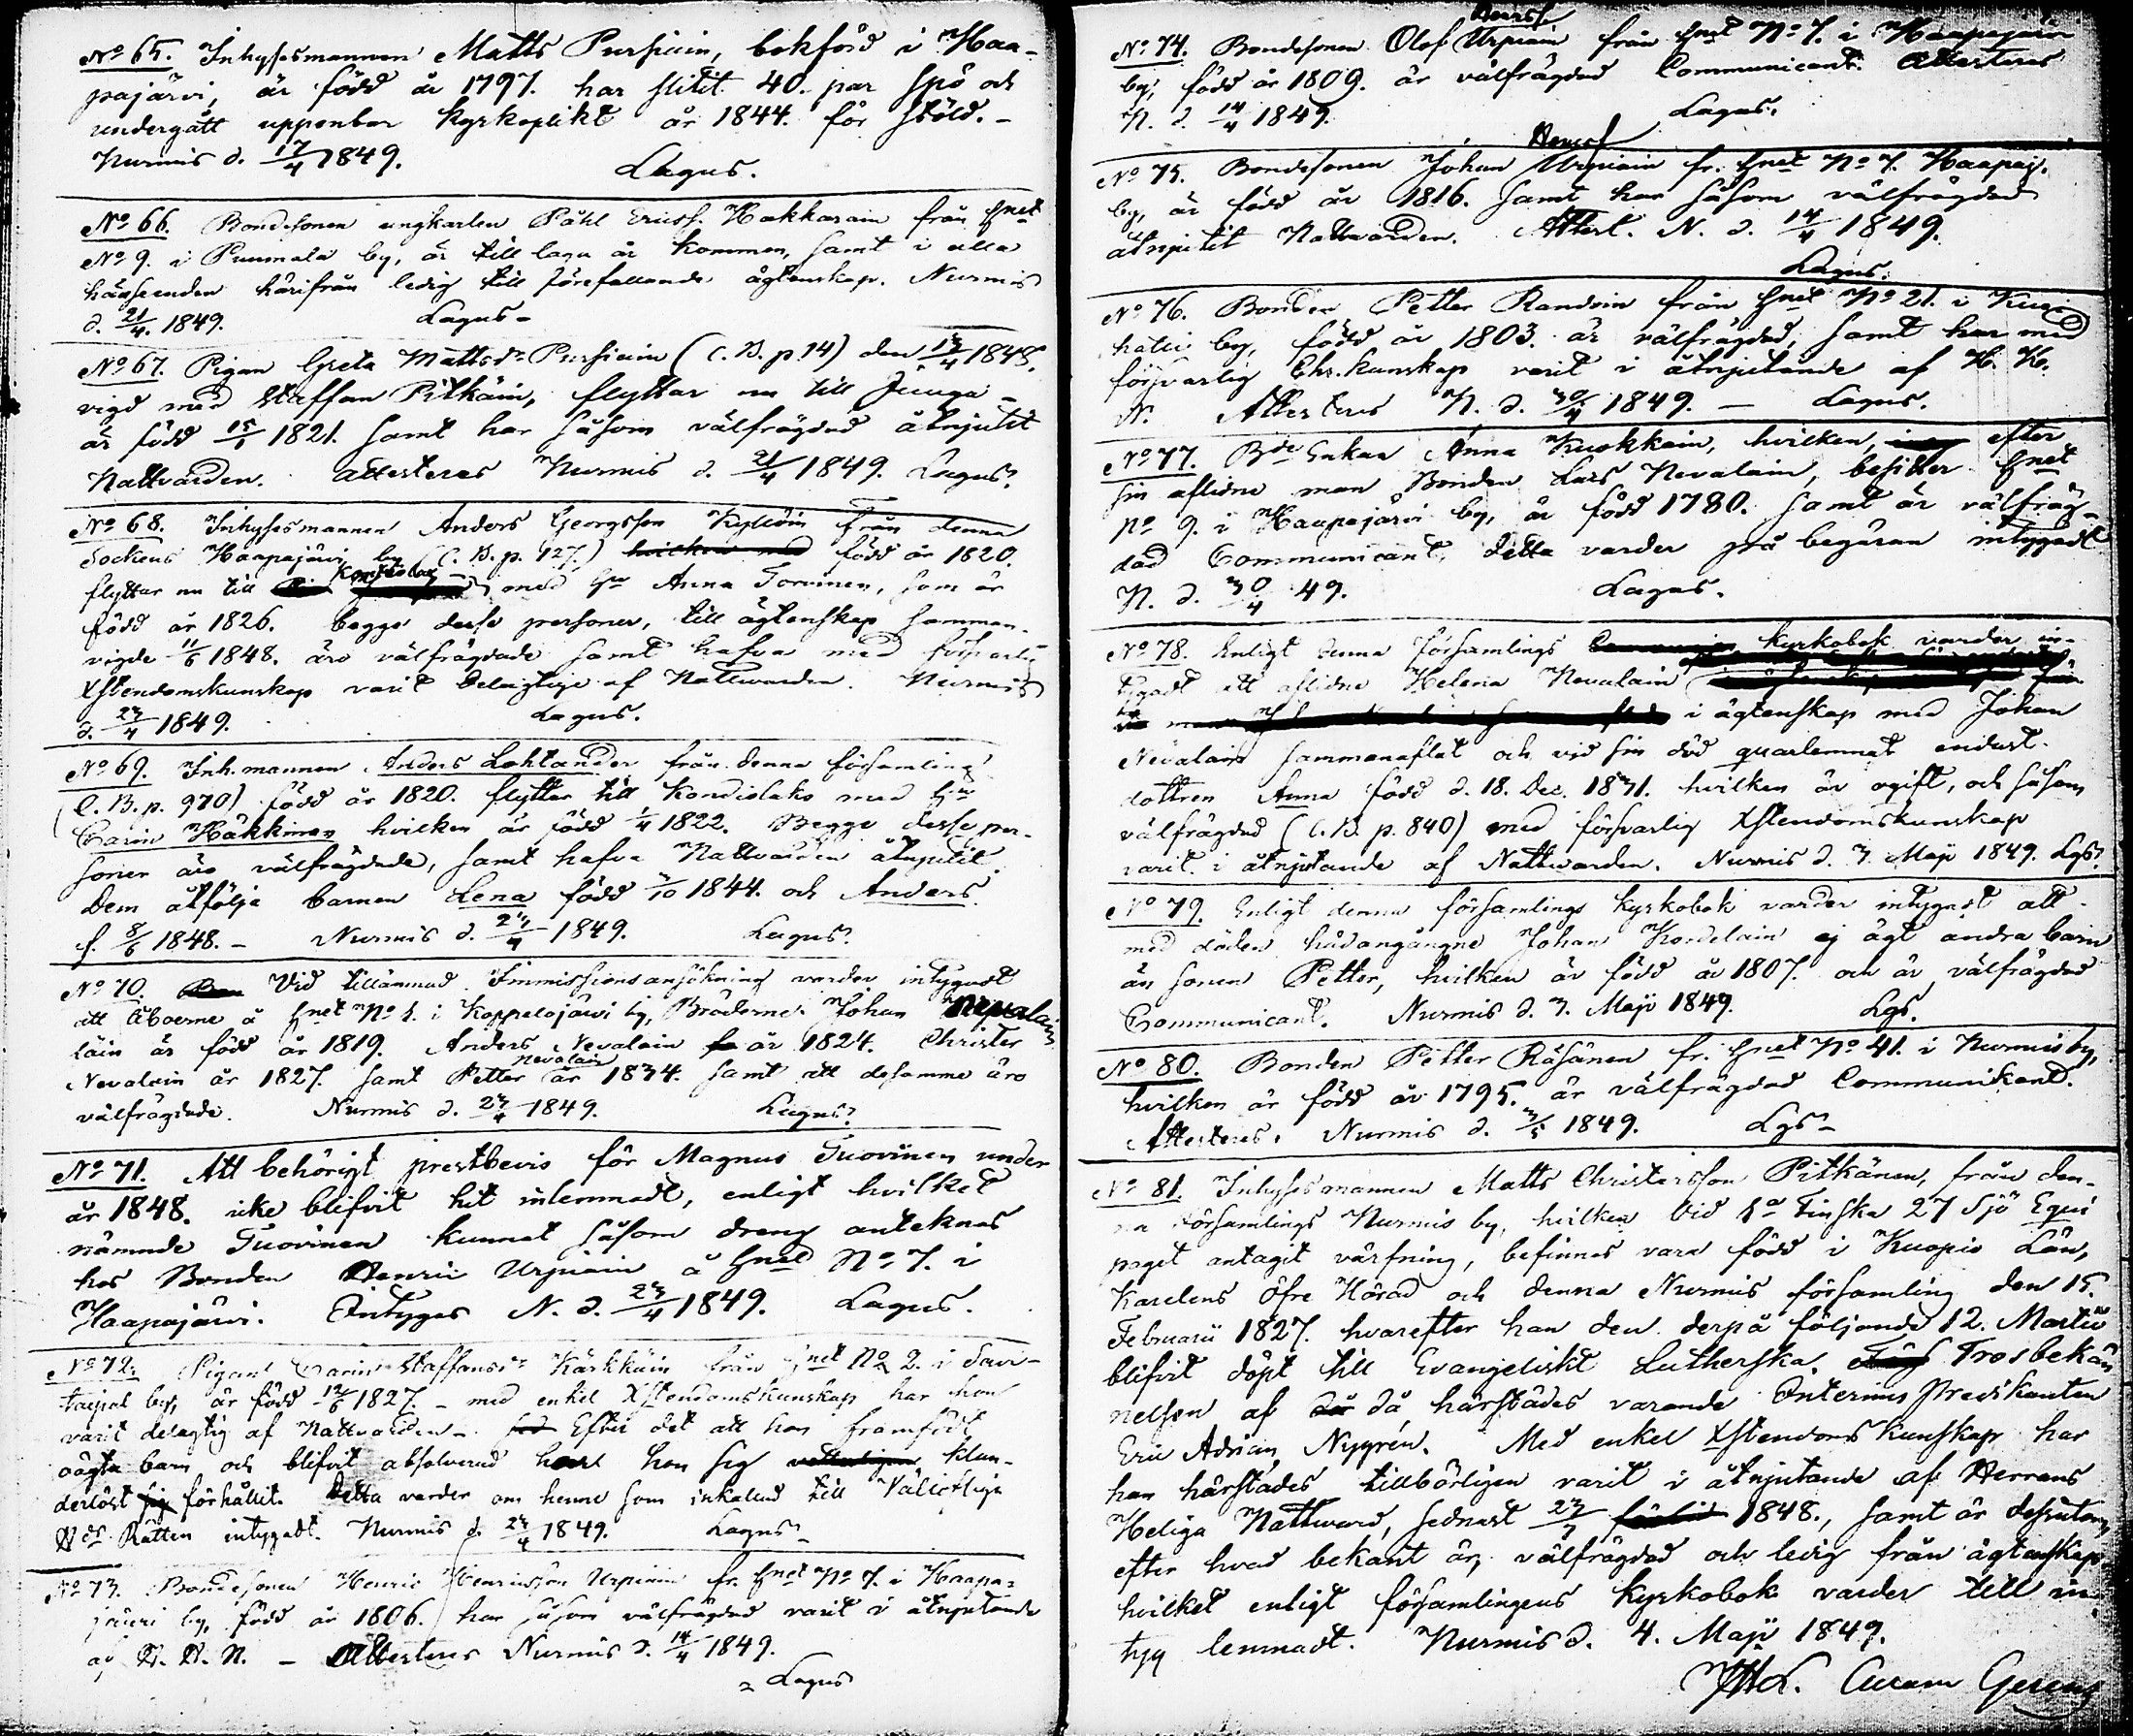 No 65. Inhysesmannen Matts Pursiain, bokförd i Haa-
pajärvi, är född år 1797. har slitit 40. par spö och
undergått uppenbar kyrkoplikt år 1844. för stöld. -
Nurmis d. 17/4 1849. Lagus.
No 66. Bondesonen ungkarlen Påhl Ericss. Hakkarain från hnet
No 9. i Puumala by, är till laga år kommen, samt i alla
hänseenden härifrån ledig till förefallande ägtenskap. Nurmis
d. 21/4. 1849. Lagus -
No 67. Pigan Greta Mattsdr Pursiain (C. B. p. 14) den 13/4 1845.
vigd med Staffan Pitkäin, flyttar nu till Juuga -
är född 15/1 1821. samt har såsom välfrägdad åtnjutit
Nattvarden. Attesteras Nurmis d. 21/4 1849. Lagus.
No 68. Inhysesmannen Anders Georgsson Kyllöin från denna
Sockens Haapajärvi by (C. B. p. 127.) hvilken med född år 1820.
flyttar nu till Kontiolax med hu Anna Torvinen, som är
född år 1826. begge desse personer, till ägtenskap samman-
vigde 11/6 1848. äro välfrägdade samt hafva med försvarlig
Xstendomskunskap varit delagtige af Nattwarden. Nurmis
d. 23/4 1849. Lagus.
No 69. Inh.mannen Anders Lohlander från denna församling
(C. B. p. 970) född år 1820. flyttar till Kondiolaks med hu
Carin Häkkinen hvilken är född 1/4 1822. Begge desse per-
soner äro välfrägdade, samt hafva Nattvarden åtnjutit.
Dem åtfölja barnen Lena född 3/10 1844. och Anders
f. 8/6 1848. - Nurmis d. 23/4 1849. Lagus.
No 70. Vid tillämnad Immissionsansökning varder intygadt
att Åboerne å hnet No 1. i Koppelojärvi by, Bröderne Johan Nevalain
läin är född år 1819. Anders Nevalain år 1824. Christer
Nevalain år 1827. samt Petter Nevalain år 1834. samt att desamme äro
välfrägdade. Nurmis d. 23/4 1849. Lagus.
No 71. Att behörigt prestbevis för Magnus Tuovinen under
år 1848. icke blifvit hit inlemnadt, enligt hvilket
nämnde Tuovinen kunnat såsom dreng anteknas
hos Bonden Henric Urpiain å hnet No 7. i
Haapajärvi. Intygas N. d. 23/4 1849. Lagus.
No 72. Pigan Carin Staffansdr Kärkkäin från hnet No 2. i Savi-
taipal by, är född 12/6 1827. - med enkel Xstendomskunskap har hon
varit delagtig af Nattvarden - Efter det att hon framfödt
oägta barn och blifvit absolverad har hon sig klan-
derlöst sig förhållit. Detta varder om henne som inkallad till Vällofliga
Hds Rätten intygadt. Nurmis d. 23/4 1849. Lagus -
No 73. Bondesonen Henric Henricsson Urpiain fr. hnet No 7. i Haapa-
järvi by, född år 1806. har såsom välfrägdad varit i åtnjutande
af H. H. N. - Attesteras Nurmis d. 14/4 1849.
Lagus
No 74. Bondesonen Olof Henrss. Urpiain från hnet No 7. i Haapajärvi
by, född år 1809. är välfrägdad Communicant. Attesteras
N. d. 14/4 1849. Lagus.
No 75. Bondesonen Johan Henrss. Urpiain fr. hnet No 7. Haapaj.
by, är född år 1816. samt har såsom välfrägdad
åtnjutit Nattwarden. Attest. N. d. 14/4 1849.
Lagus.
No 76. Bonden Petter Randoin från hnet No 21. i Kuo
hatti by, född år 1803. är välfrägdad, samt har med
försvarlig Chr.kunskap varit i åtnjutande af H. H.
N. Attesteras N. d. 30/4 1849. - Lagus.
No 77. Bde Enkan Anna Kuokkain, hvilken, efter
sin aflidne man Bonden Lars Nevalain, besitter hnet
No 9. i Haapajärvi by, är född 1780. samt är välfräg-
dad Communicant, detta varder på begäran intygadt
N. d. 30/4 49. Lagus.
No 78. Enligt denna församlings kyrkobok varder in-
tygadt att aflidne Helena Nevalain
i ägtenskap med Johan
Nevalain sammanaflat och vid sin död quarlemnat endast
dottren Anna född d. 18. Dec. 1831. hvilken är ogift, och såsom
välfrägdad (C. B. p. 840) med försvarlig Xstendomskunskap
varit i åtnjutande af Nattwarden. Nurmis d. 3. Maji 1849. Lgs.
No 79. Enligt denna församlings kyrkobok varder intygadt att
med döden hädangångne Johan Kordelain ej ägt andra barn
än sonen Petter, hvilken är född år 1807. och är välfrägdad
Communicant. Nurmis d. 3. Maji 1849. Lgs.
No 80. Bonden Petter Räsänen fr. hnet No 41. i Nurmis by,
hvilken är född år 1795. är välfrägdad Communikand.
Attesteras. Nurmis d. 3/5 1849. Lgs -
No 81. Inhysesmannen Matts Christersson Pitkänen, från den-
na församlings Nurmis by, hvilken vid 1a Finska 27 Sjö Equi
paget antagit värfning, befinnes vara född i Kuopio Län,
Karelens Öfre Härad och denna Nurmis församling den 15.
Februarii 1827. hvarefter han den derpå följande 12. Martii
blifvit döpt till Evangeliskt Lutherska Trosbekän
nelsen af då härstädes varande Interims Predikanten
Eric Adrian Nygrén. Med enkel Xstendoms kunskap har
han härstädes tillbörligen varit i åtnjutande af Herrans
Heliga Nattward, sednast 23/7 1848., samt är dessutom,
efter hvad bekant är, välfrägdad och ledig från ägtenskap
hvilket enligt församlingens kyrkobok varder till in-
tyg lemnadt. Nurmis d. 4. Maji 1849.
Curam Gerens